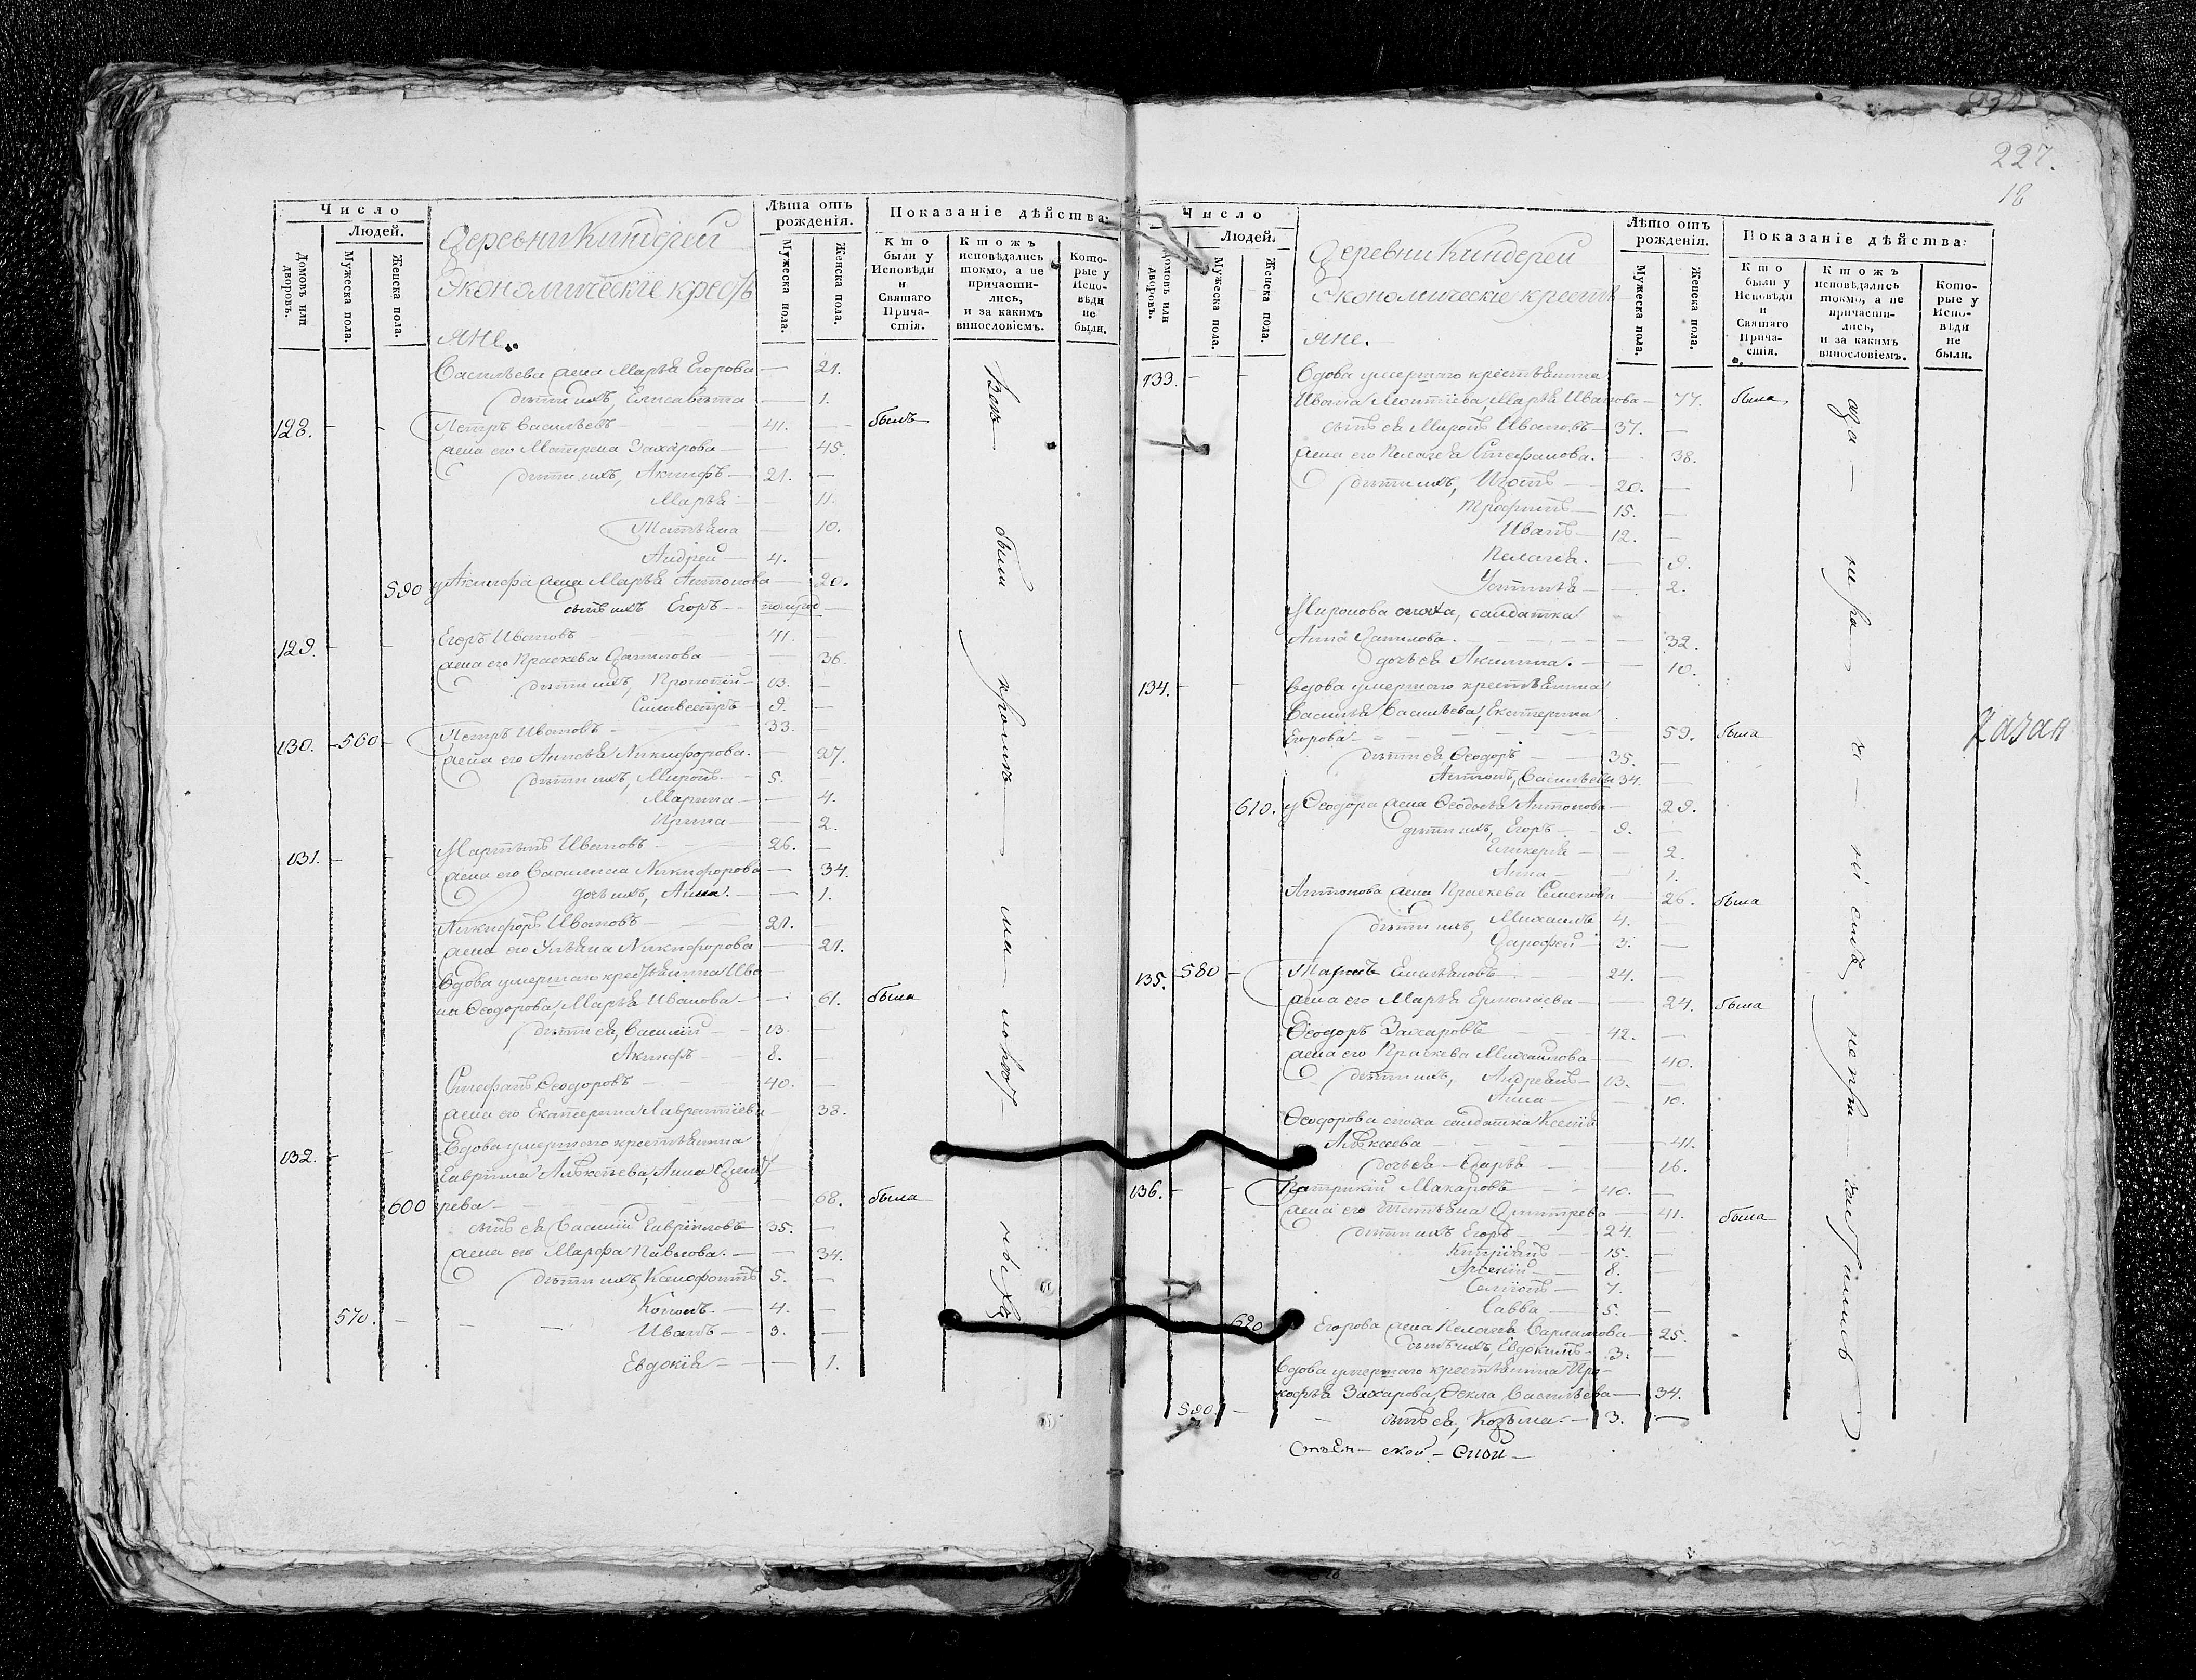 Число
Людей.
Домовъ или дворовъ.
Мужеска пола.
Женска пола.
Деревни Киндерей
Экономическіе кресть
яне.
Лѣта отъ рожденія.
Мужеска пола.
Женска пола.
Показаніе дѣйства:
Кто были у Исповѣди и Святаго Прича-стія.
Ктожъ исповѣдались токмо, а не причасти-лись, и за какимъ винословіемъ.
Кото-рые у Испо-вѣди не были.
Васильева жена Марья Егорова — 21.
дѣти ихъ, Елисавета — 1.
128. Петръ Васильевъ — 41. — былъ
жена его Матрена Захарова — 45.
дѣти ихъ, Акинфъ — 21. —
Марья — 11.
Татьяна — 10.
Андрей — 4. —
590 у Акинфа жена Марья Антонова — 20.
сынъ ихъ Егоръ —
129. Егоръ Ивановъ 41. —
жена его Праскева Данилова — 36.
дѣти ихъ, Прокопій — 13. —
Силивестръ — 9. —
130. 560 Петръ Ивановъ 33. —
жена его Никифорова. — 27.
дѣти ихъ, Миронъ — 5.
Марина — 4.
Ирина — 2.
131. Мартынъ Ивановъ — 26. —
жена его Василиса Никифорова — 34.
дочь ихъ, Анна. — 1.
Никифоръ Ивановъ — 21. —
жена его Ульяна Никифорова — 21.
Вдова умершаго крестьянина Ива
на Ѳеодорова, Марья Иванова. — 61. была
дѣти ея, Василій — 13. —
Акинфъ — 8. —
Стефанъ Ѳеодоровъ — 40. —
жена его Екатерина Лаврентіева — 38.
132. Вдова умершаго крестьянина
Гавріила Алексѣева, Анна Дмит
600 рева — 68. была
сынъ ея Василій Гавріиловъ — 35. —
жена его Марфа Павлова. — 34.
дѣти ихъ, Ксенофонтъ 5. —
Кононъ. — 4. —
570. Иванъ — 3. —
Евдокія — 1.
227.
18
Число
Людей.
Домовъ или дворовъ.
Мужеска пола.
Женска пола.
Деревни Киндерей
Экономическіе крестья
яне.
Лѣто отъ рожденія.
Мужеска пола.
Женска пола.
Показаніе дѣйства:
Кто были у Исповѣди и Святаго Прича-стія.
Ктожъ исповѣдались токмо, а не причасти-лись, и за какимъ винословіемъ.
Кото-рые у Испо-вѣди не были.
133. Вдова умершаго крестьянина
Ивана Леонтіева, Марья Иванова — 77. была
сынъ ея Миронъ Ивановъ — 37. —
жена его Пелагея Стефанова. — 38.
дѣти ихъ, Изотъ — 20. —
Трофимъ — 15. —
Иванъ — 12. —
Пелагея. — 9.
Устинья — 2.
Миронова сноха, салдатка
Анна Данилова. — 32.
дочь ея Акилина. — 10.
134. Вдова умершаго крестьянина
Василья Васильева, Екатерина
Егорова — 59. была
дѣти ея, Ѳеодоръ — 35. —
Антонъ, Васильевы 34. —
610. у Ѳеодора жена Ѳеодосья Антонова — 29.
дѣти ихъ, Егоръ — 9. —
Гликерія — 2.
Анна — 1.
Антонова жена Праскева Семенова — 26. была
дѣти ихъ, Михаилъ 4. —
Дорофей — 3. —
135. 580 — 24. —
жена его Марья Ермолаева — 24. была
Ѳеодоръ Захаровъ — 42. —
жена его Праскева Михаилова — 40.
дѣти ихъ, Андреянъ — 13. —
Анна — 10.
Ѳеодорова сноха салдатка Ксенія
Алексеева — 41.
дочь ея — Дарья — 16.
136. Патрикій Макаровъ — 40. —
жена его Татьяна Дмитрева — 41. была
дѣти ихъ Егоръ — 24. —
Кипріянъ — 15. —
Арсеній — 8. —
Семіонъ — 7.
Савва — 5. —
620 Егорова жена Пелагея Варламова — 25.
сынъ ихъ, Евдокимъ — 3. —
Вдова умершаго крестьянина Про-
кофья Захарова, Ѳекла Васильева — 34.
590. — сынъ ея, Козьма. — 3. —
Казан